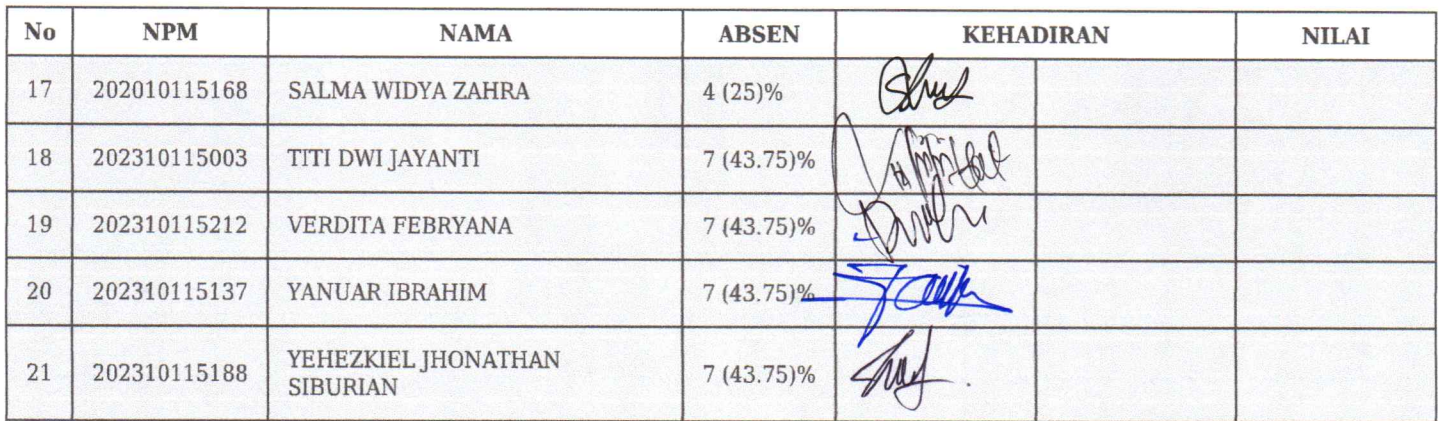 No NPM NAMA ABSEN KEHADIRAN NILAI
17 202010115168 SALMA WIDYA ZAHRA 4 (25)%
18 202310115003 TITI DWI JAYANTI 7 (43.75)%
19 202310115212 VERDITA FEBRYANA 7 (43.75)%
20 202310115137 YANUAR IBRAHIM 7 (43.75)%
21 202310115188 YEHEZKIEL JHONATHAN
SIBURIAN 7 (43.75)%